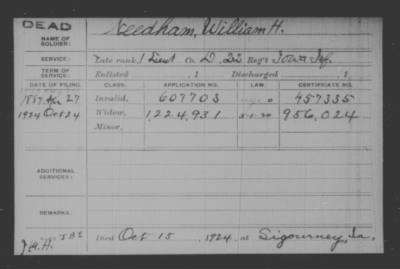 DEAD
NAME OF SOLDIER: Needham, William H.
SERVICE: Late rank, 1 Lieut Co. D, 22 Reg't Iowa Inf.
TERM OF SERVICE: Enlisted , 1 Discharged , 1
DATE OF FILING. CLASS. APPLICATION NO. LAW. CERTIFICATE NO.
1887 Apr 27 Invalid, 607703 457335
1924 Oct 24 Widow, 1,224,931 5-1-20 956,024
Minor,
ADDITIONAL SERVICES:
REMARKS:
Died Oct 15, 1924, at Sigourney, Ia.